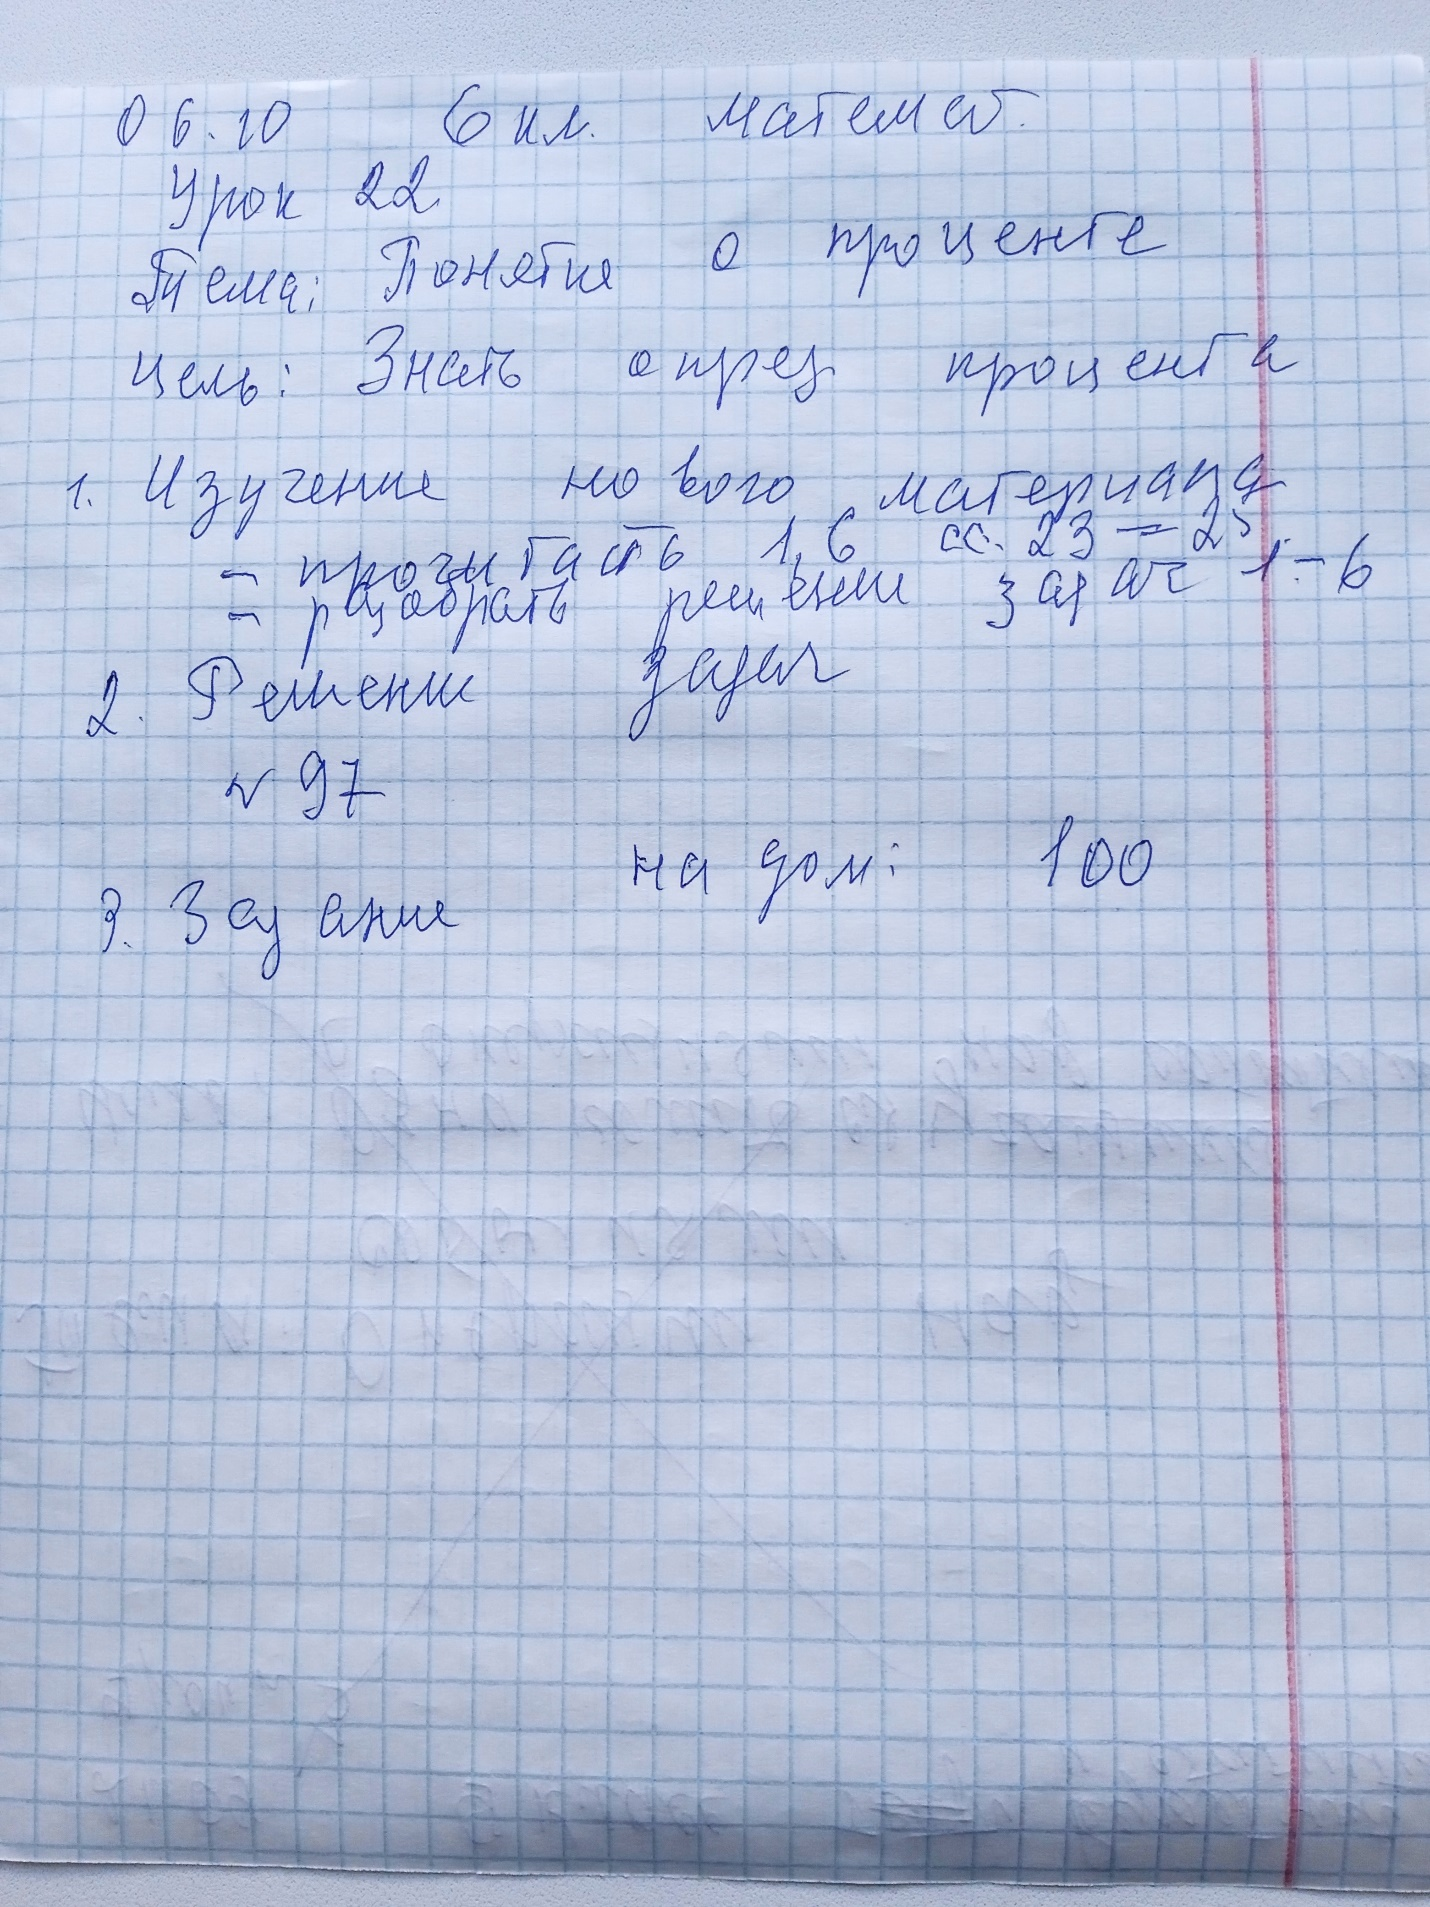 06.10 6 кл. математ.
Урок 22
Тема: Понятие о проценте
Цель: Знать опред процента
1. Изучение нового материала
- прочитать 1.6 сс. 23 - 25
- разобрать решении задач 1 - 6
2. Решение задач
№ 97
3. Задание на дом: 100